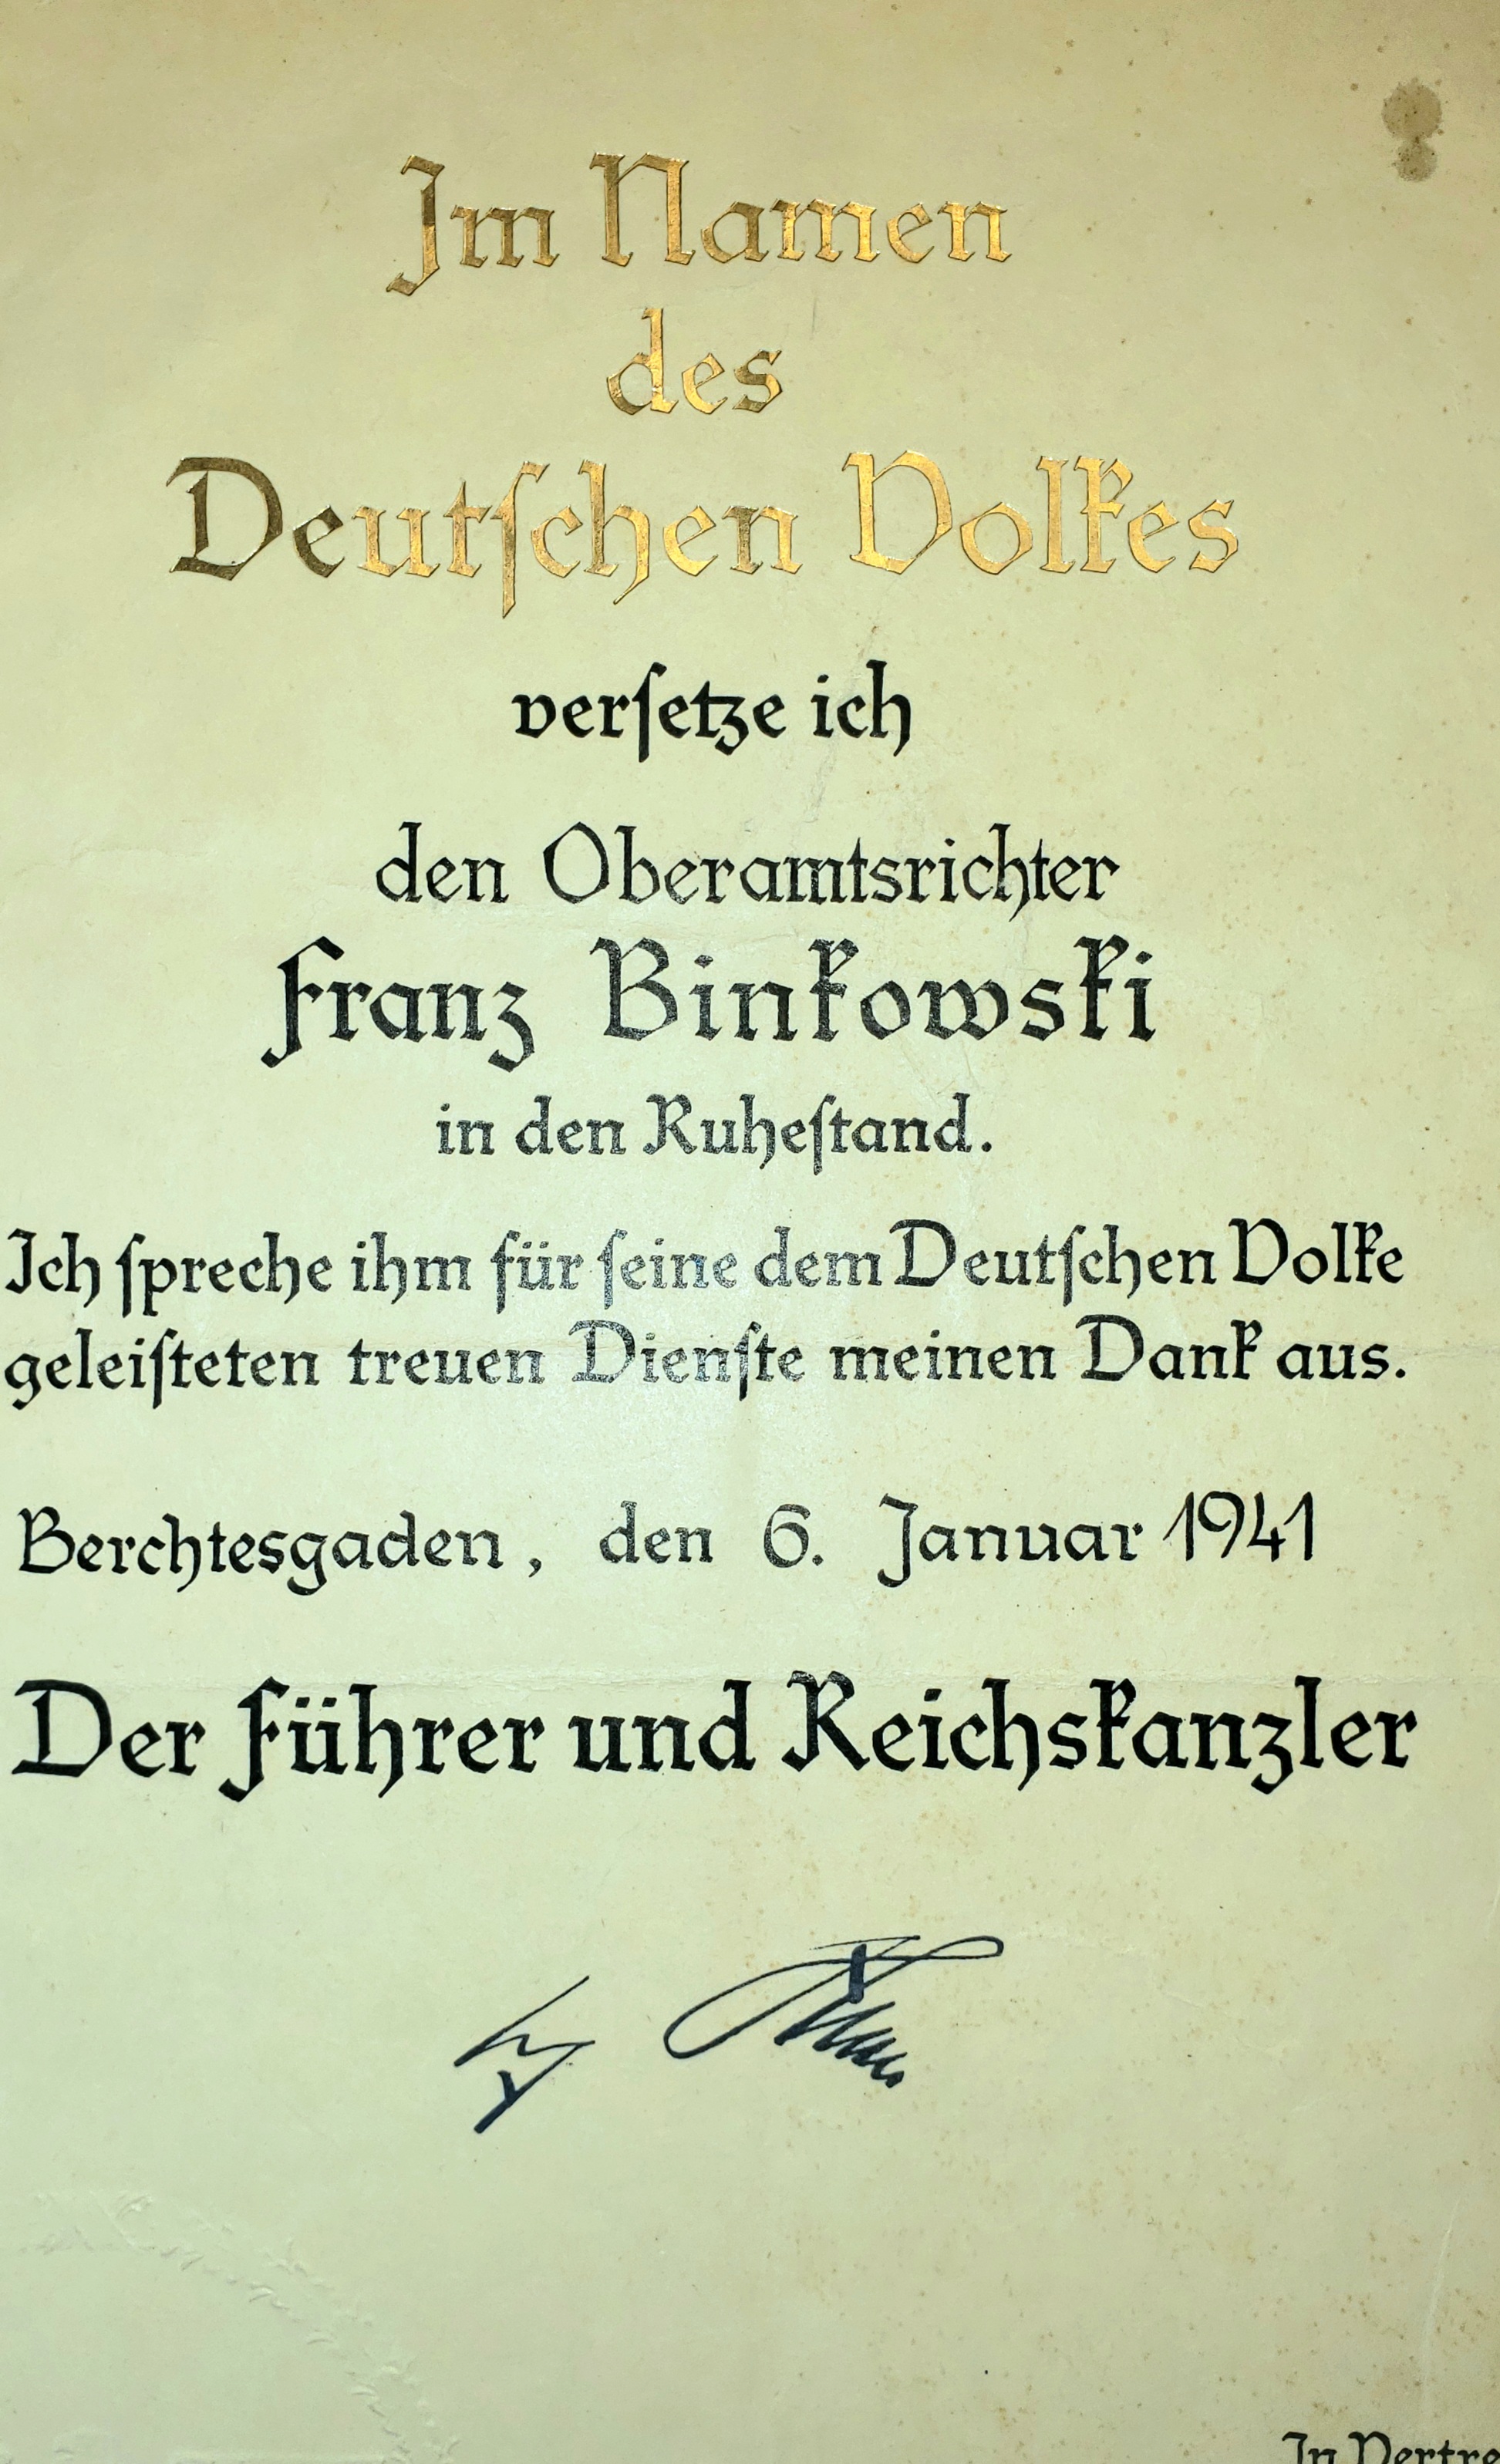 Im Namen
des
Deutschen Volkes
versetze ich
den Oberamtsrichter
Franz Binkowski
in den Ruhestand.
Ich spreche ihm für seine dem Deutschen Volke
geleisteten treuen Dienste meinen Dank aus.
Berchtesgaden, den 6. Januar 1941
Der Führer und Reichskanzler
In